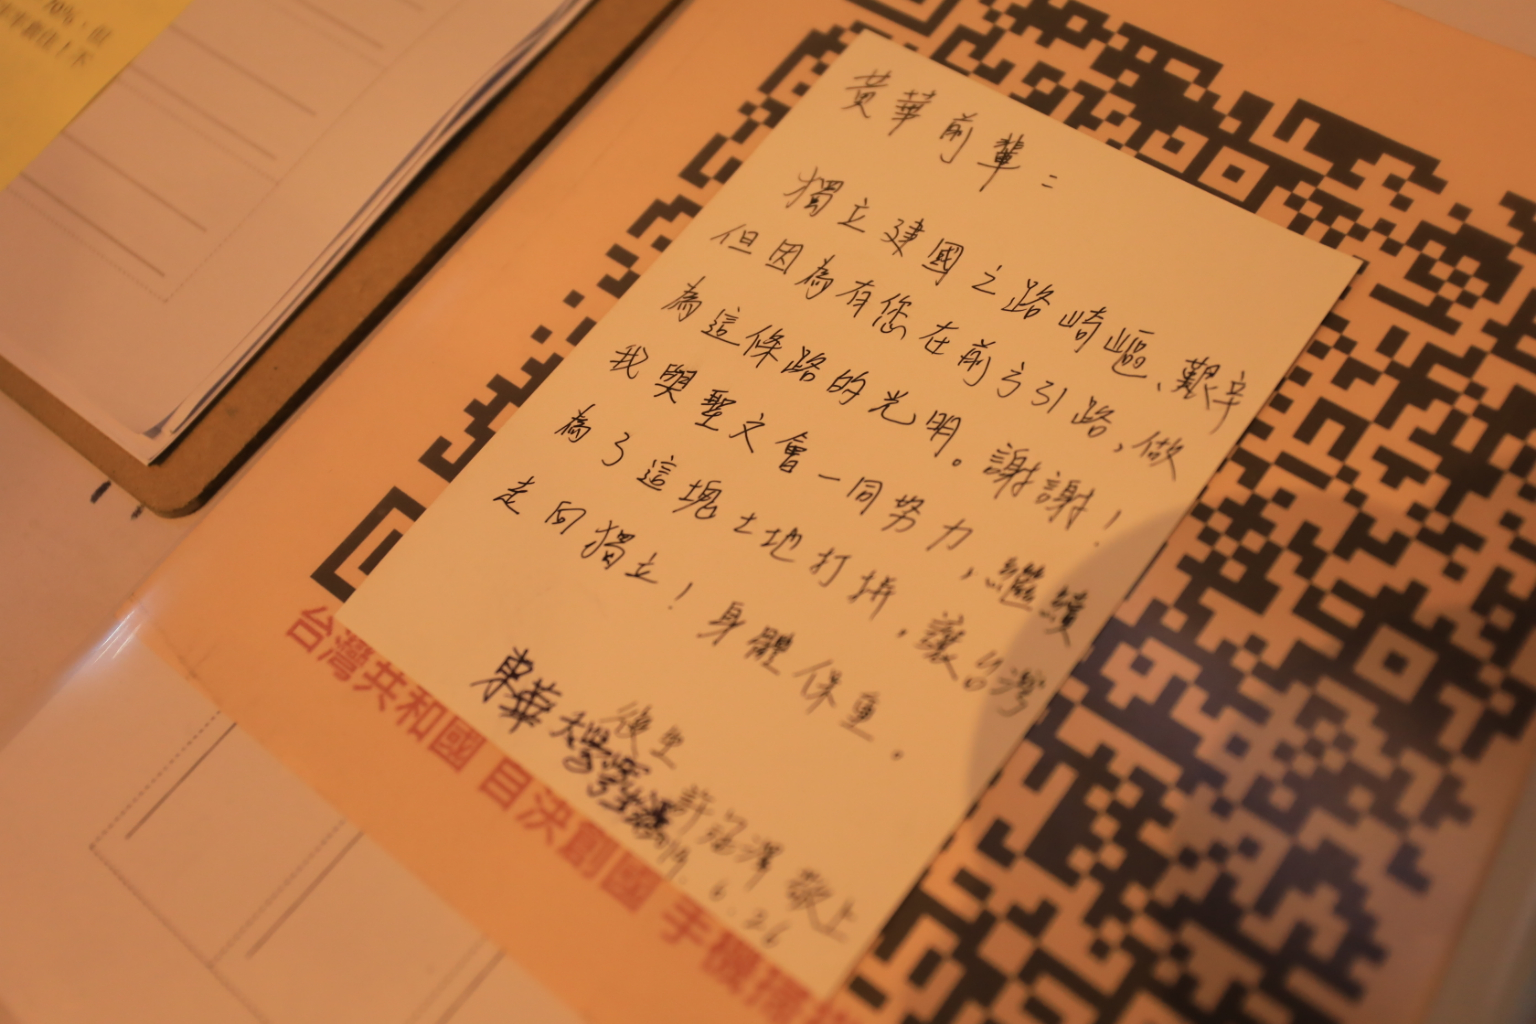 70%，但
黃華前輩：
獨立建國之路崎嶇、艱辛
但因為有您在前方引路，做
為這條路的光明。謝謝！
我與聖文會一同努力，繼續
為了這塊土地打拼，讓台灣
走向獨立！身體保重。
後生
許 敬上
6.26
東華大學
台灣共和國 自決創國 手機